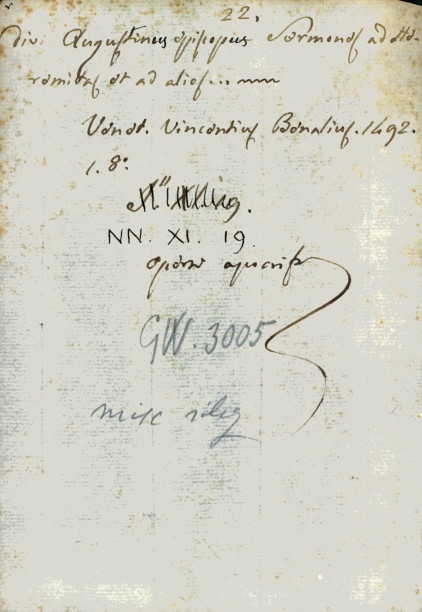 22.
Divi Augustinus episcopus Sermones ad He-
remitas et ad alios...
Venet. Vincentius Benalius. 1492.
1. 8°
NN. XI. 19.
GW. 3005
misc